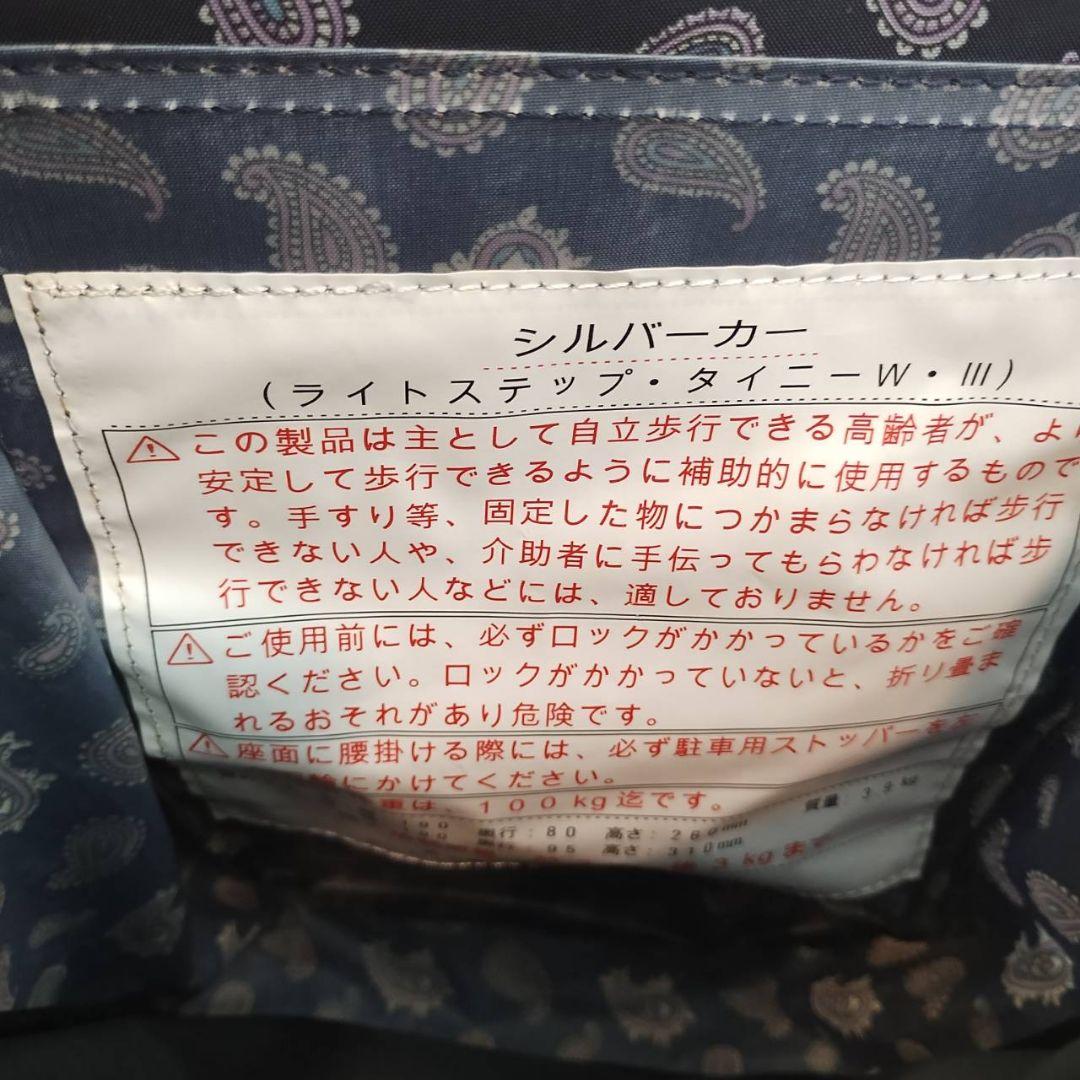 シルバーカー
(ライトステップ・タイニーW・III)
⚠この製品は主として自立歩行できる高齢者が、よ
安定して歩行できるように補助的に使用するもので
す。手すり等、固定した物につかまらなければ歩行
できない人や、介助者に手伝ってもらわなければ歩
行できない人などには、適しておりません。
⚠ご使用前には、必ずロックがかかっているかをご確
認ください。ロックがかかっていないと、折り畳ま
れるおそれがあり危険です。
⚠座面に腰掛ける際には、必ず駐車用ストッパーを
にかけてください。
は、100kg迄です。 質量:3.9kg
190 奥行:80 高さ:260mm
奥行:95 高さ:310mm
3kgまで